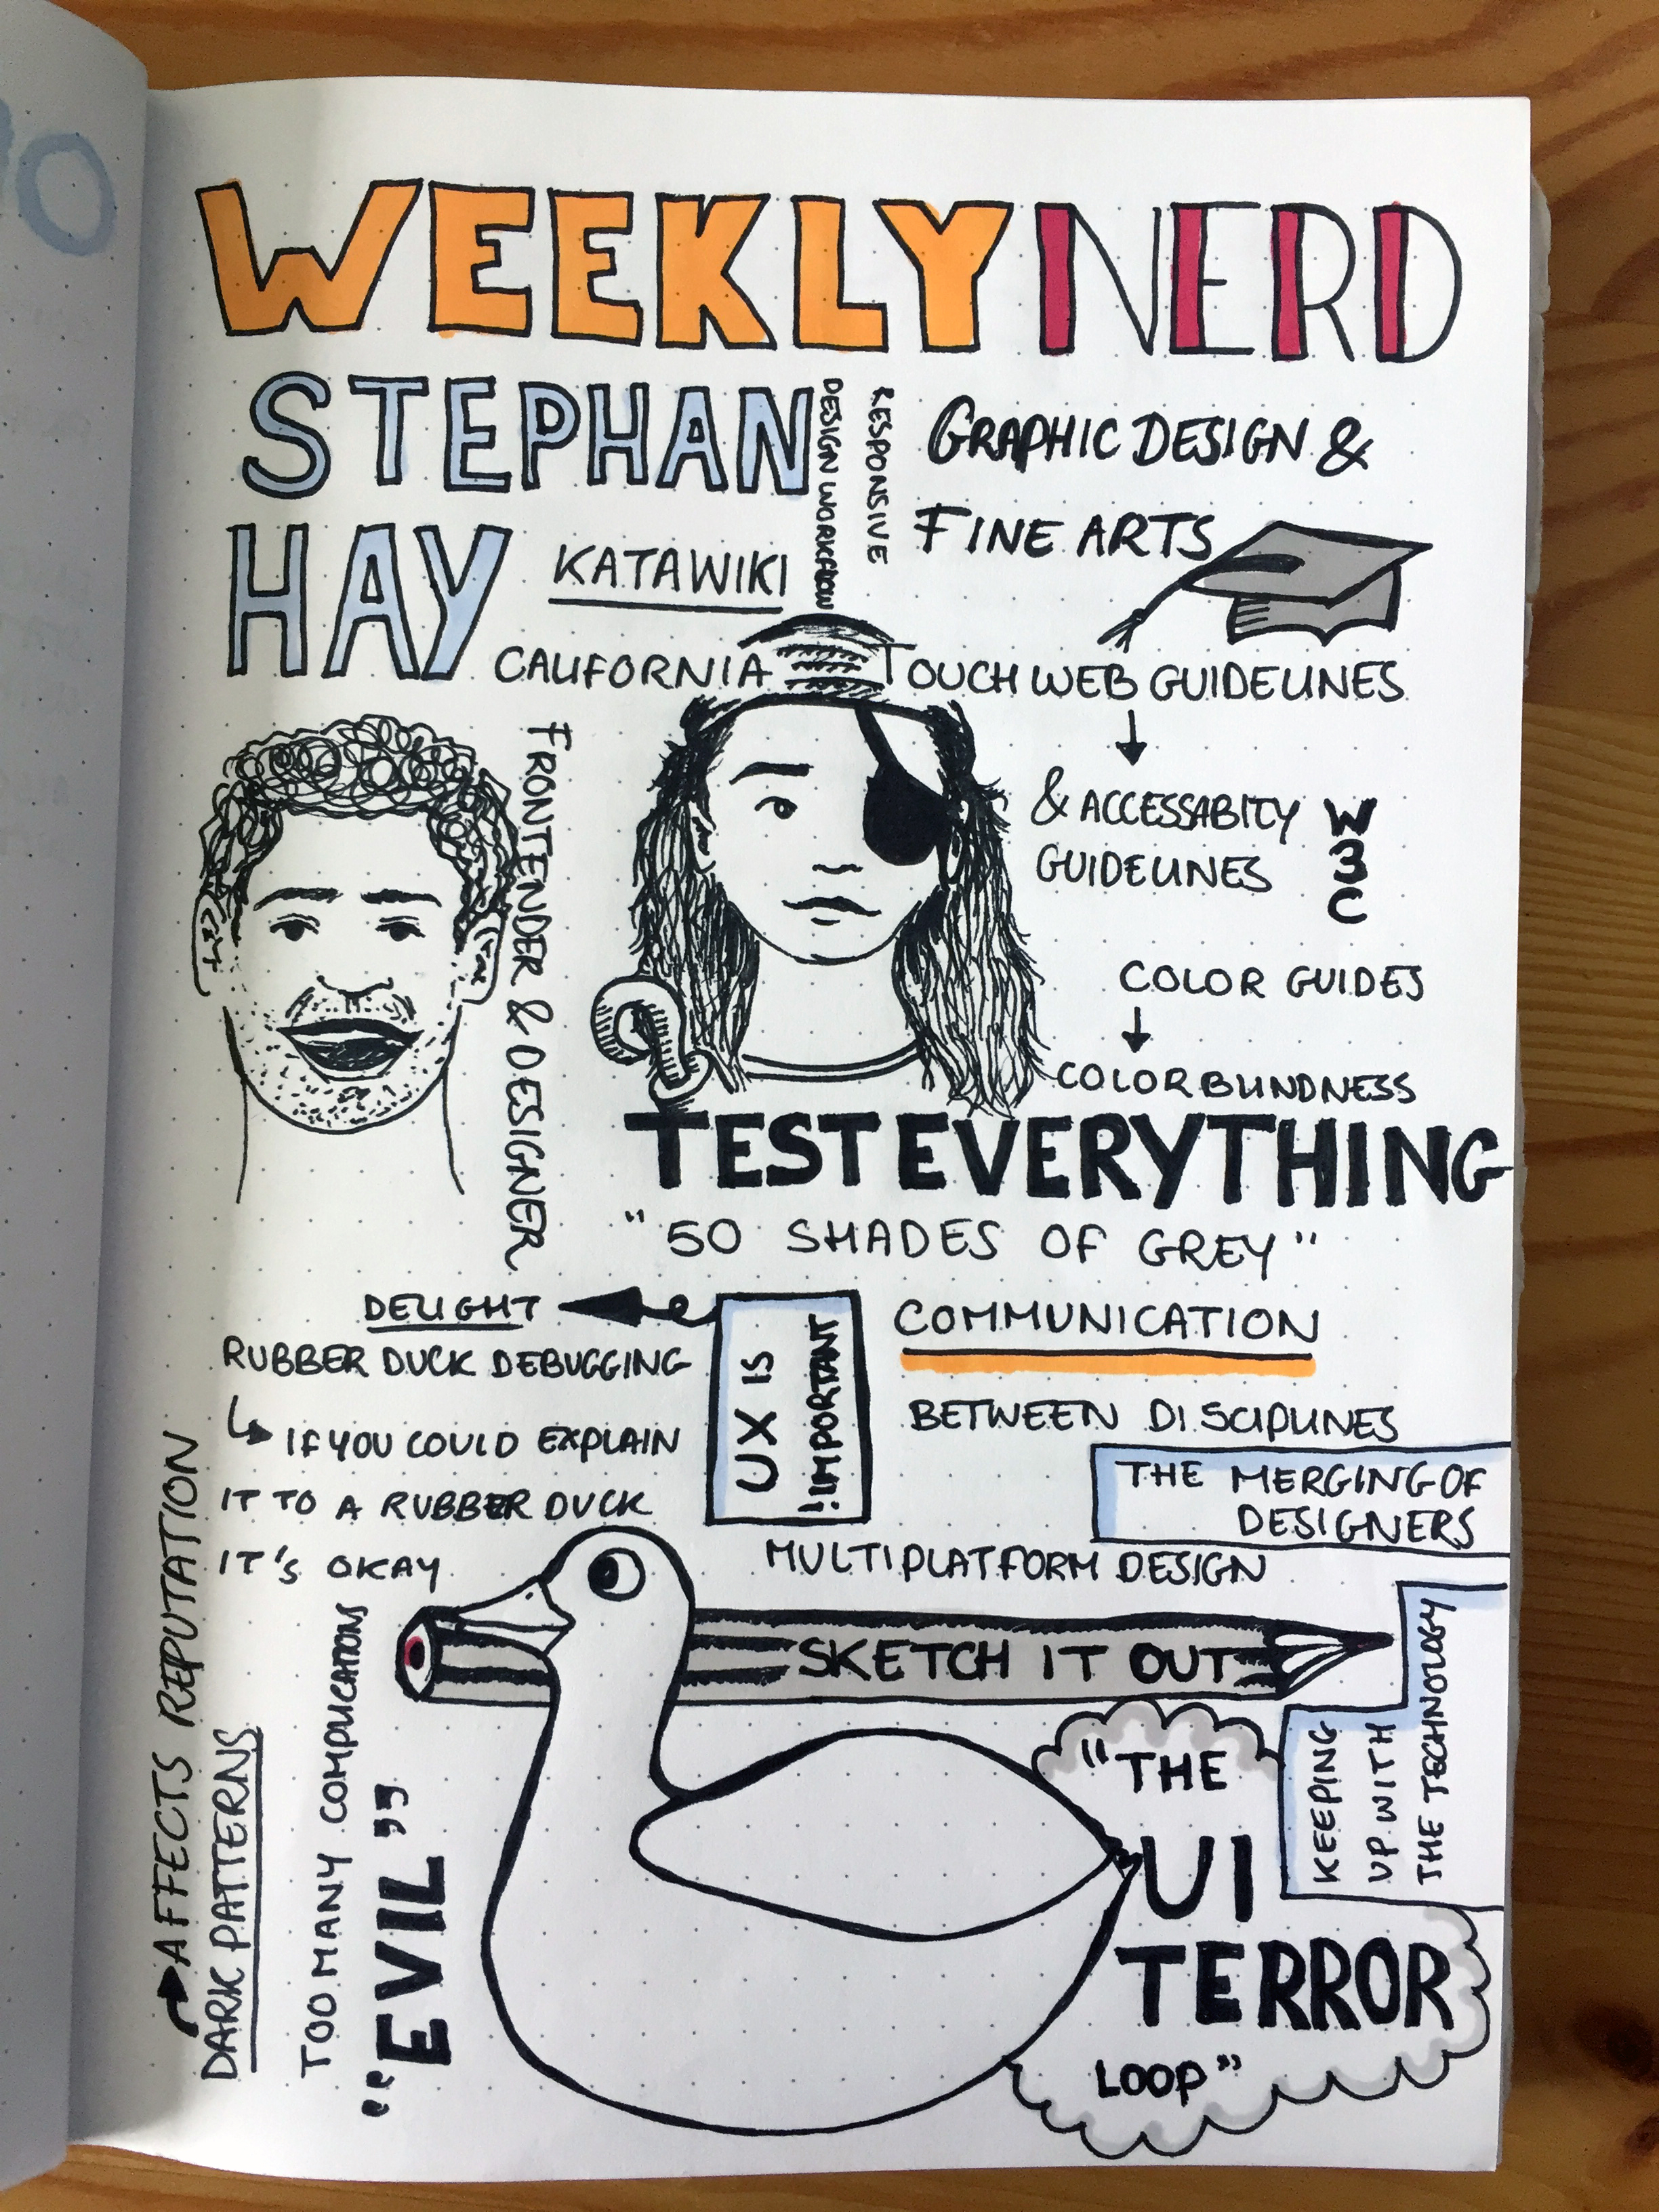 WEEKLY NERD
STEPHAN
HAY
KATAWIKI
CALIFORNIA
RESPONSIVE
DESIGN WORKFLOW
GRAPHIC DESIGN &
FINE ARTS
TOUCH WEB GUIDELINES
& ACCESSABITY
GUIDELINES
W3C
COLOR GUIDES
COLORBLINDNESS
FRONTENDER & DESIGNER
TEST EVERYTHING
"50 SHADES OF GREY"
DELIGHT
UX IS
!IMPORTANT
RUBBER DUCK DEBUGGING
IF YOU COULD EXPLAIN
IT TO A RUBBER DUCK
IT'S OKAY
COMMUNICATION
BETWEEN DISCIPLINES
THE MERGING OF
DESIGNERS
MULTIPLATFORM DESIGN
SKETCH IT OUT
KEEPING
UP WITH
THE TECHNOLOGY
"THE
UI
TERROR
LOOP"
AFFECTS REPUTATION
DARK PATTERNS
TOO MANY COMPLICATIONS
"EVIL"